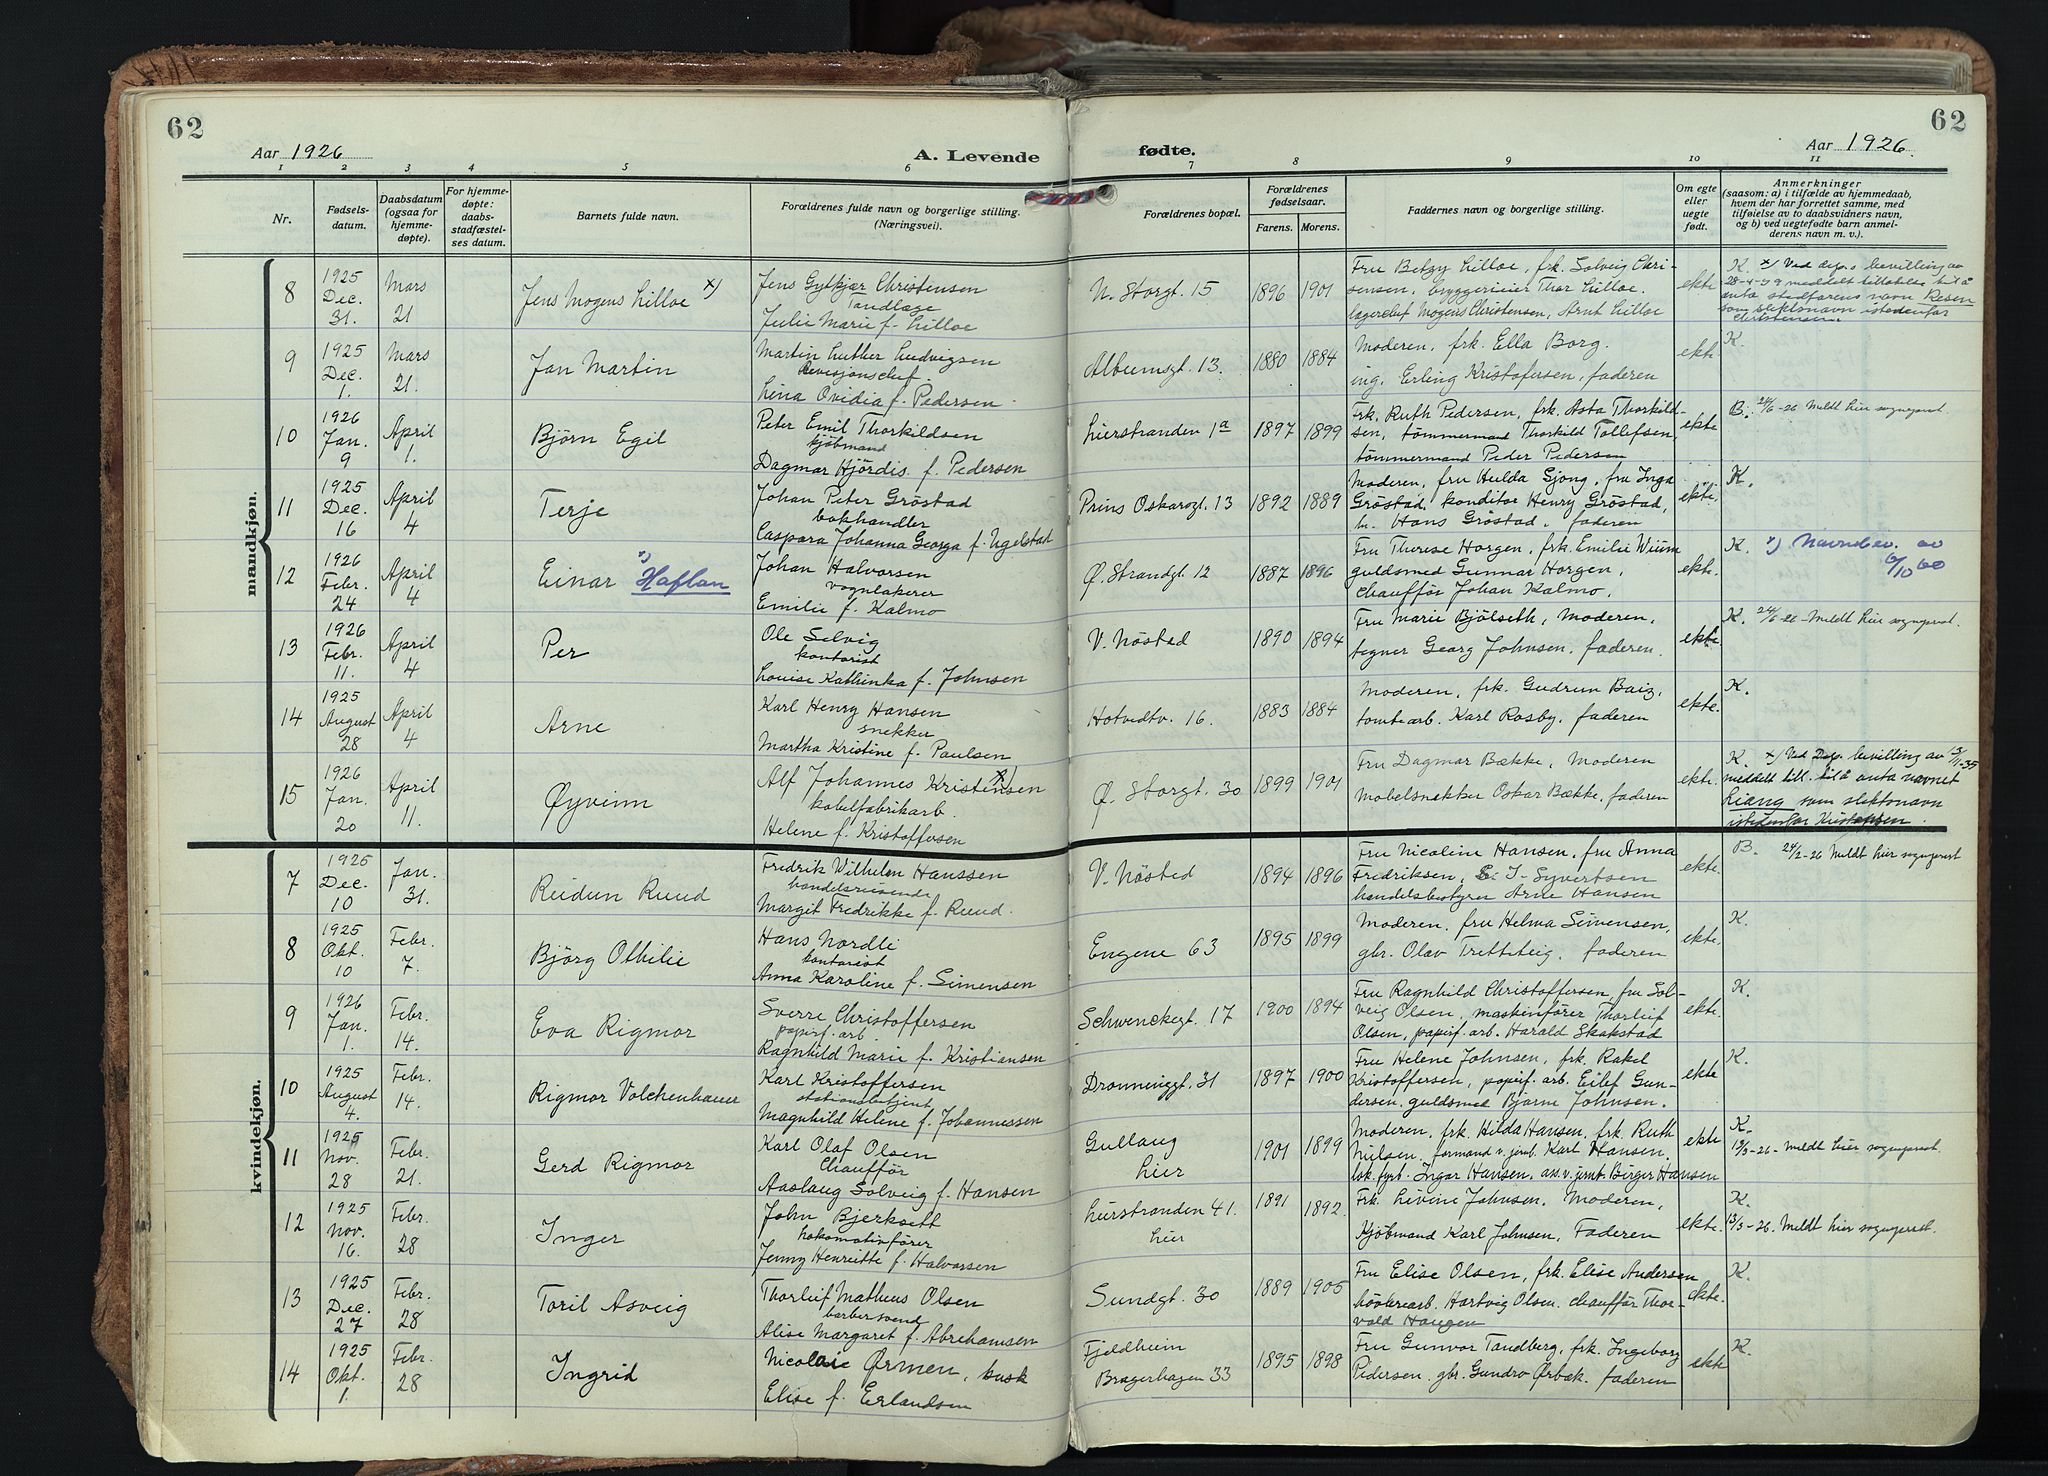 62
62
Aar 1926
A. Levende
fødte.
Aar 1926.
1 2 3 4 5 6 7 8 9 10 11
Nr.
Fødsels-
datum.
Daabsdatum
(ogsaa for
hjemme-
døpte).
For hjemme-
døpte:
daabs-
stadfæstel-
ses datum.
Barnets fulde navn.
Forældrenes fulde navn og borgerlige stilling.
(Næringsvei).
Forældrenes bopæl.
Forældrenes
fødselsaar.
Farens. Morens.
Faddernes navn og borgerlige stilling.
Om egte
eller
uegte
født.
Anmerkninger
(saasom: a) i tilfælde av hjemmedaab,
hvem der har forrettet samme, med
tilføielse av to daabsvidners navn,
og b) ved uegtefødte barn anmel-
derens navn m. v.).
mandkjøn.
8
1925
Dec.
31.
Mars
21
Jens Mogens Lilloe x)
Jens Gylkjær Christensen
Tandlæge
Julie Marie f. Lilloe
N. Storgt. 15
1896 1901
Fru Betzy Lilloe, frk. Solveig Chri-
stensen, bryggerieier Thor Lilloe.
lagerchef Mogens Christensen, Arnt Lilloe
ekte
K. x) Ved dep.s bevilling av
28-4-49 meddelt tillatelse til å
anta stedfarens navn Resen
som slektsnavn istedenfor
Christensen
9
1925
Dec.
1.
Mars
21.
Jan Martin
Martin Luther Ludvigsen
Revisjonschef.
Lina Ovidia f. Pedersen
Albumsgt. 13.
1880 1884
Moderen, frk. Ella Borg.
ing. Erling Kristofersen, faderen
ekte
K.
10
1926
Jan.
9
April
1.
Bjørn Egil
Peter Emil Thorkildsen
kjøbmand
Dagmar Hjördis f. Pedersen
Lierstranden 1a
1897 1899
Frk. Ruth Pedersen, frk. Asta Thorkild-
sen, tömmermand Thorkild Tollefsen,
tömmermand Peder Pedersen
ekte
B. 24/6-26 Meldt hier sogneprest
11
1925
Dec.
16
April
4
Terje
Johan Peter Gröstad
bokhandler
Caspara Johanna Georga f. Ugelstad
Prins Oskarsgt. 13
1892 1889
Moderen, fru Hulda Gjong, fru Inga
Gröstad, konditor Henry Gröstad,
hr. Hans Gröstad, faderen
ekte.
K.
12
1926
Febr.
24
April
4
Einar x) Haflan
Johan Halvorsen
vognlakerer
Emilie f. Kalmo
Ø. Strandgt. 12
1887 1896
Fru Therese Horgen, frk. Emilie Wium
guldsmed Gunnar Horgen,
chauffør Johan Kalmo.
ekte.
K. x) Navnebev. av
6/10 60
13
1926
Febr.
11.
April
4
Per
Ole Selvig
kontorist
Louise Kathinka f. Johnsen
V. Nøsted
1890 1894
Fru Marie Bjölseth, Moderen,
tegner Georg Johnsen, faderen.
ekte
K. 24/6-26 Meldt hier sogneprest.
14
1925
August
28
April
4
Arne
Karl Henry Hansen
snekker
Martha Kristine f. Paulsen
Hotvedtv. 16.
1883 1884
Moderen, frk. Gudrun Baiz,
tomtearb. Karl Rosby, faderen
ekte.
K.
15
1926
Jan.
20
April
11.
Øyvinn
Alf Johannes Kristensen x)
kabelfabrikarb.
Helene f. Kristoffersen
Ø. Storgt. 30
1899 1901
Fru Dagmar Bække, Moderen
Møbelsnekker Oskar Bække, faderen
ekte.
K. x) Ved Dep. bevilling av 13/11-35
meddelt till. til å anta navnet
Liang som slektsnavn
istedenfor Kristensen.
kvindekjøn.
7
1925
Dec.
10
Jan.
31.
Reidun Ruud
Fredrik Wilhelm Hanssen
handelsreisende
Margit Fredrikke f. Ruud.
V. Nøsted
1894 1896
Fru Nicoline Hansen, fru Anna
Fredriksen, S. J. Syvertsen
handelsbestyrer Arne Hansen
ekte.
B. 24/2-26 Meldt hier sogneprest
8
1925
Okt.
10
Febr.
7.
Björg Othilie
Hans Nordli
kontorist
Anna Karoline f. Simensen
Engene 63
1895 1899
Moderen, fru Helma Simensen,
gbr. Olav Tretteteig, faderen
ekte.
K.
9
1926
Jan.
1.
Febr.
14.
Eva Rigmor
Sverre Christoffersen
papirf. arb.
Ragnhild Marie f. Kristiansen
Schwenckegt. 17
1900 1894
Fru Ragnhild Christoffersen, fru Sol-
veig Olsen, maskinfører Thorleif
Olsen, papirf. arb. Harald Skakstad
ekte.
K.
10
1925
August
4.
Febr.
14.
Rigmor Volchenhauer
Karl Kristoffersen
stationsbetjent
Magnhild Helene f. Johannessen
Dronninggt. 31
1897 1900
Fru Helene Johnsen, frk. Rakel
Kristoffersen, papirf. arb. Eilef Gun-
dersen, guldsmed Bjarne Johnsen.
ekte
K.
11
1925
Nov.
28
Febr.
21.
Gerd Rigmor
Karl Olaf Olsen
Chauffør
Aaslaug Solveig f. Hansen
Gullaug
hier
1901 1899
Moderen, frk. Hilda Hansen, frk. Ruth
Nielsen, formand v. jernb. Karl Hansen,
lok. fyrb. Ingar Hansen, ass. v. jernb. Birger Hansen
ekte
K.
13/3-26- Meldt hier sogneprest.
12
1925
Nov.
16.
Febr.
28
Inger
John Bjerksett
Lokomotivfører
Jenny Henriette f. Halvorsen
Lierstranden 41.
hier
1891 1892
Frk. Livine Johnsen, Moderen,
Kjöbmand Karl Johnsen, Faderen
ekte.
K.
13/3-26. Meldt hier sogneprest.
13
1925
Dec.
27
Febr.
28
Toril Asveig
Thorleif Matheus Olsen
barbersvend
Alise Margaret f. Abrehamsen
Sundgt. 30
1889 1905
Fru Elise Olsen, frk. Elise Andersen
høvleriarb. Hartvig Olsen. chauffør Thor-
vald Haugen
ekte.
K.
14
1925
Okt.
1.
Febr.
28
Ingrid
Nicolaie Ørmen, busk
Elise f. Erlandsen
Fjeldheim
Bragerhagen 33
1895 1898
Fru Gunvor Tandberg, frk. Ingeborg
Pedersen, gbr. Gundro Ørbæk, faderen
ekte
K.